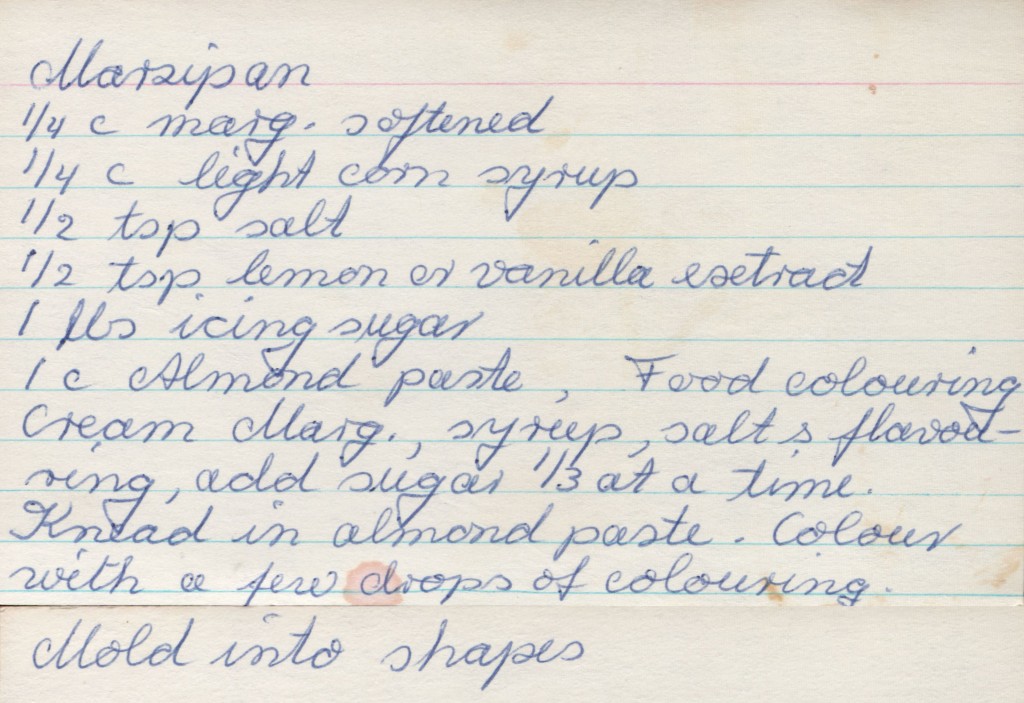 Marzipan
1/4 c marg. softened
1/4 c light corn syrup
1/2 tsp salt
1/2 tsp lemon or vanilla exetract
1 lbs icing sugar
1 c Almond paste, Food colouring
Cream Marg., syrup, salt & flavou-
ring, add sugar 1/3 at a time.
Knead in almond paste. Colour
with a few drops of colouring.
Mold into shapes